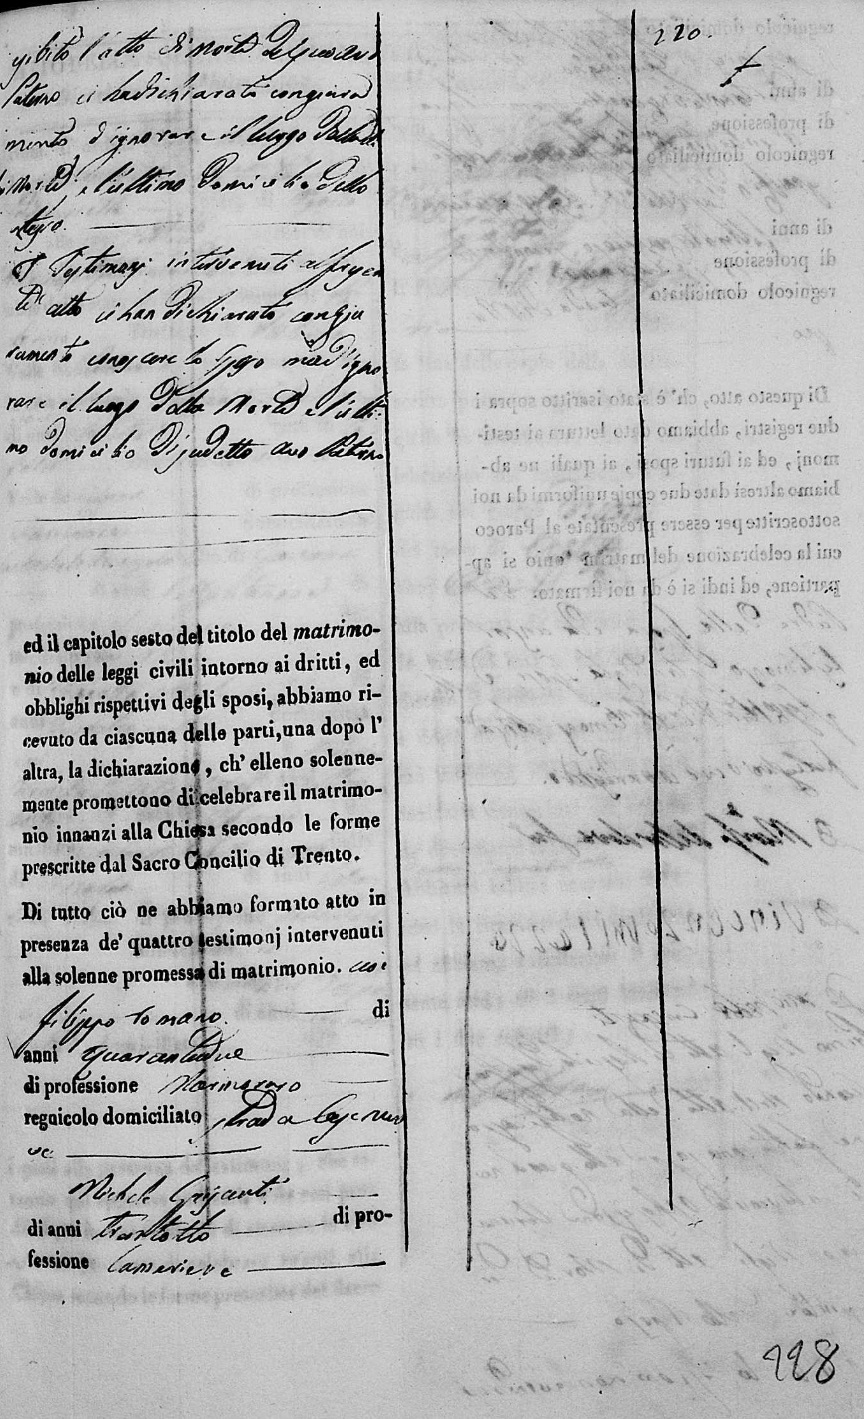 220.
gibito l'atto di morte del suo avo
Paterno ci ha dichiarato con giura
mento d'ignorare il luogo della
di Morte, e l'ultimo domicilio dello
stesso.
I Testimonj intervenuti al presen
te atto ci han dichiarato con giu
ramento conoscere lo sposo ma d'igno
rare il luogo della Morte e l'ulti
mo domicilio di sudetto avo Paterno
ed il capitolo sesto del titolo del matrimo-
nio delle leggi civili intorno ai dritti, ed
obblighi rispettivi degli sposi, abbiamo ri-
cevuto da ciascuna delle parti, una dopo l'
altra, la dichiarazione, ch' elleno solenne-
mente promettono di celebrare il matrimo-
nio innanzi alla Chiesa secondo le forme
prescritte dal Sacro Concilio di Trento.
Di tutto ciò ne abbiamo formato atto in
presenza de' quattro testimonj intervenuti
alla solenne promessa di matrimonio. cioè
Filippo Romano di
anni quarantadue
di professione Marmoraro
regnicolo domiciliato strada
Michele
di anni trentotto di pro-
fessione Cameriere
228